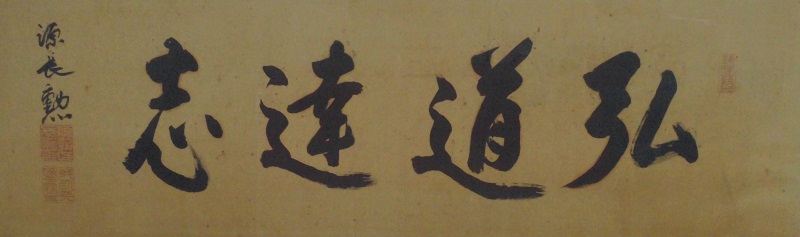 弘道達志
源長勲